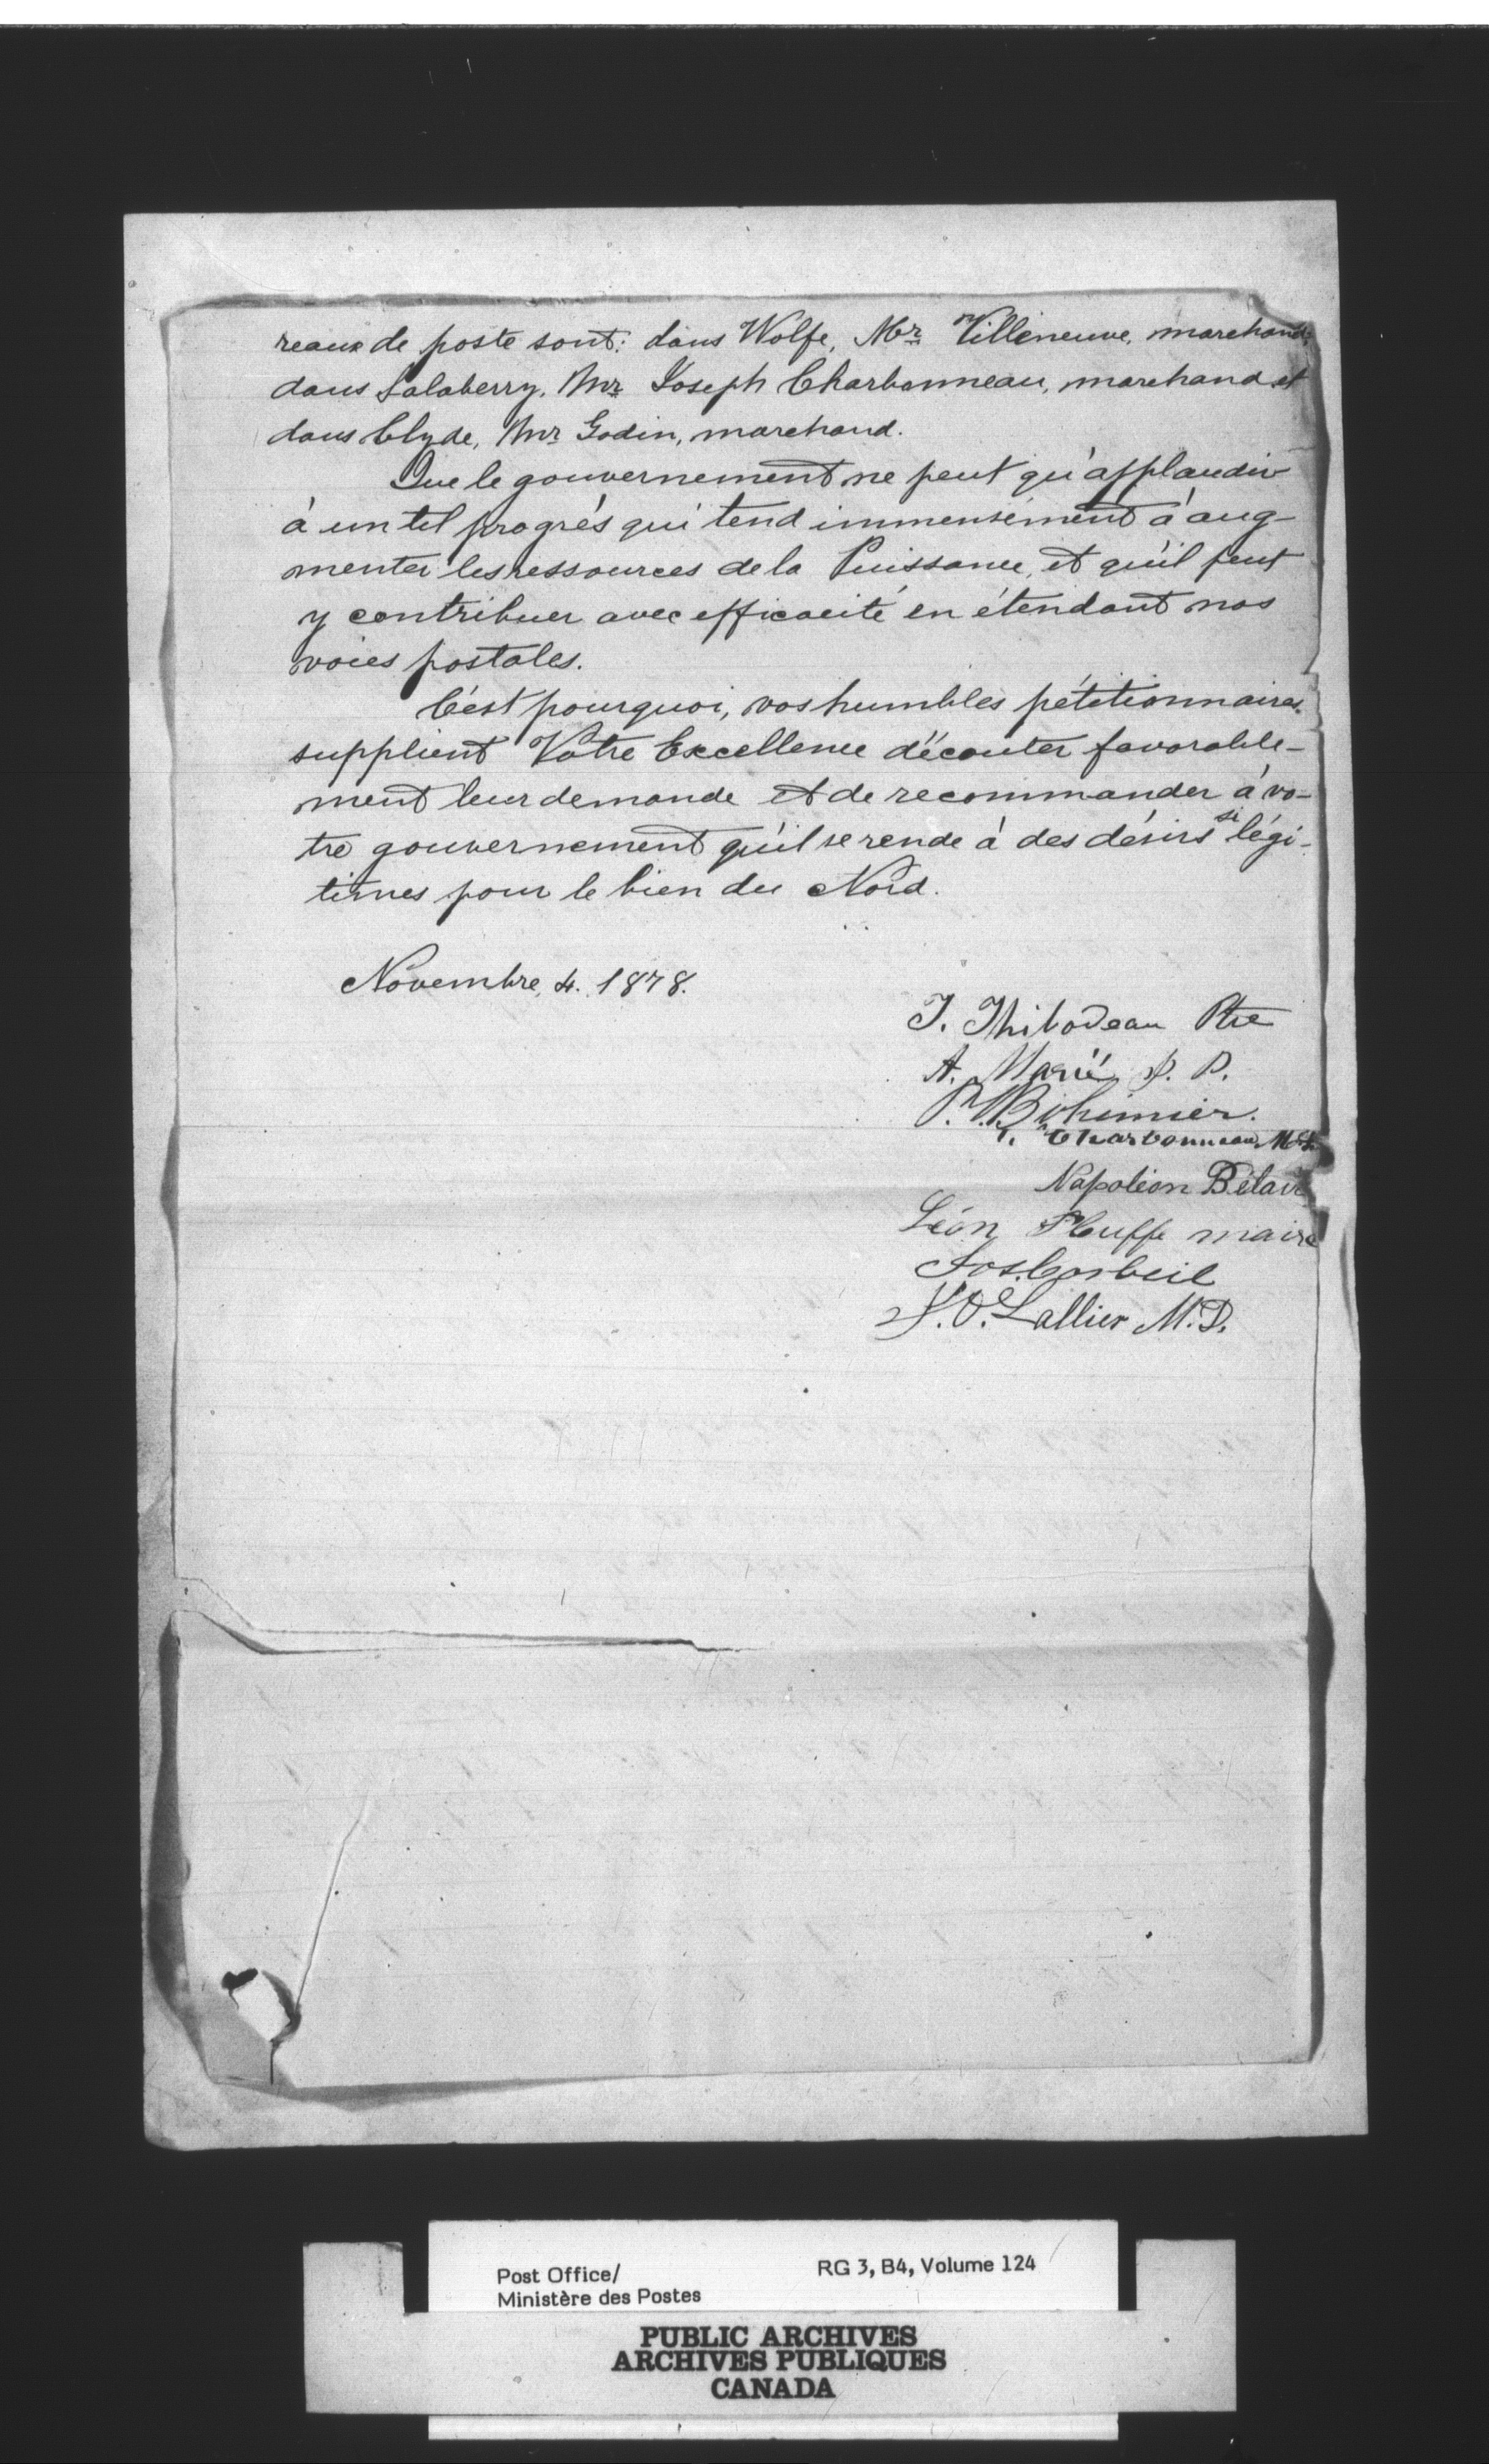 reaux de poste sont: dans Wolfe, Mr Villeneuve, marchand,
dans Salaberry, Mr Joseph Charbonneau, marchand et
dans Clyde, Mr Godin, marchand.
Que le gouvernement ne peut qu'applaudir
à un tel progrès qui tend immensément à aug-
menter les ressources de la Puissance, et qu'il peut
y contribuer avec efficacité en étendant nos
voies postales.
C'est pourquoi, vos humbles pétitionnaires
supplient Votre Excellence d'écouter favorable-
ment leur demande et de recommander à vo-
tre gouvernement qu'il se rende à des désirs si légi-
times pour le bien du Nord.
Novembre, 4. 1878.
J. Thibodeau Ptre
A. Marié
Bohémier.
Charbonneau
Napoléon Bélair
Léon Pluffe maire
Jos. Corbeil
J. O. Lallier M.D.
Post Office/
Ministère des Postes
RG 3, B4, Volume 124
PUBLIC ARCHIVES
ARCHIVES PUBLIQUES
CANADA